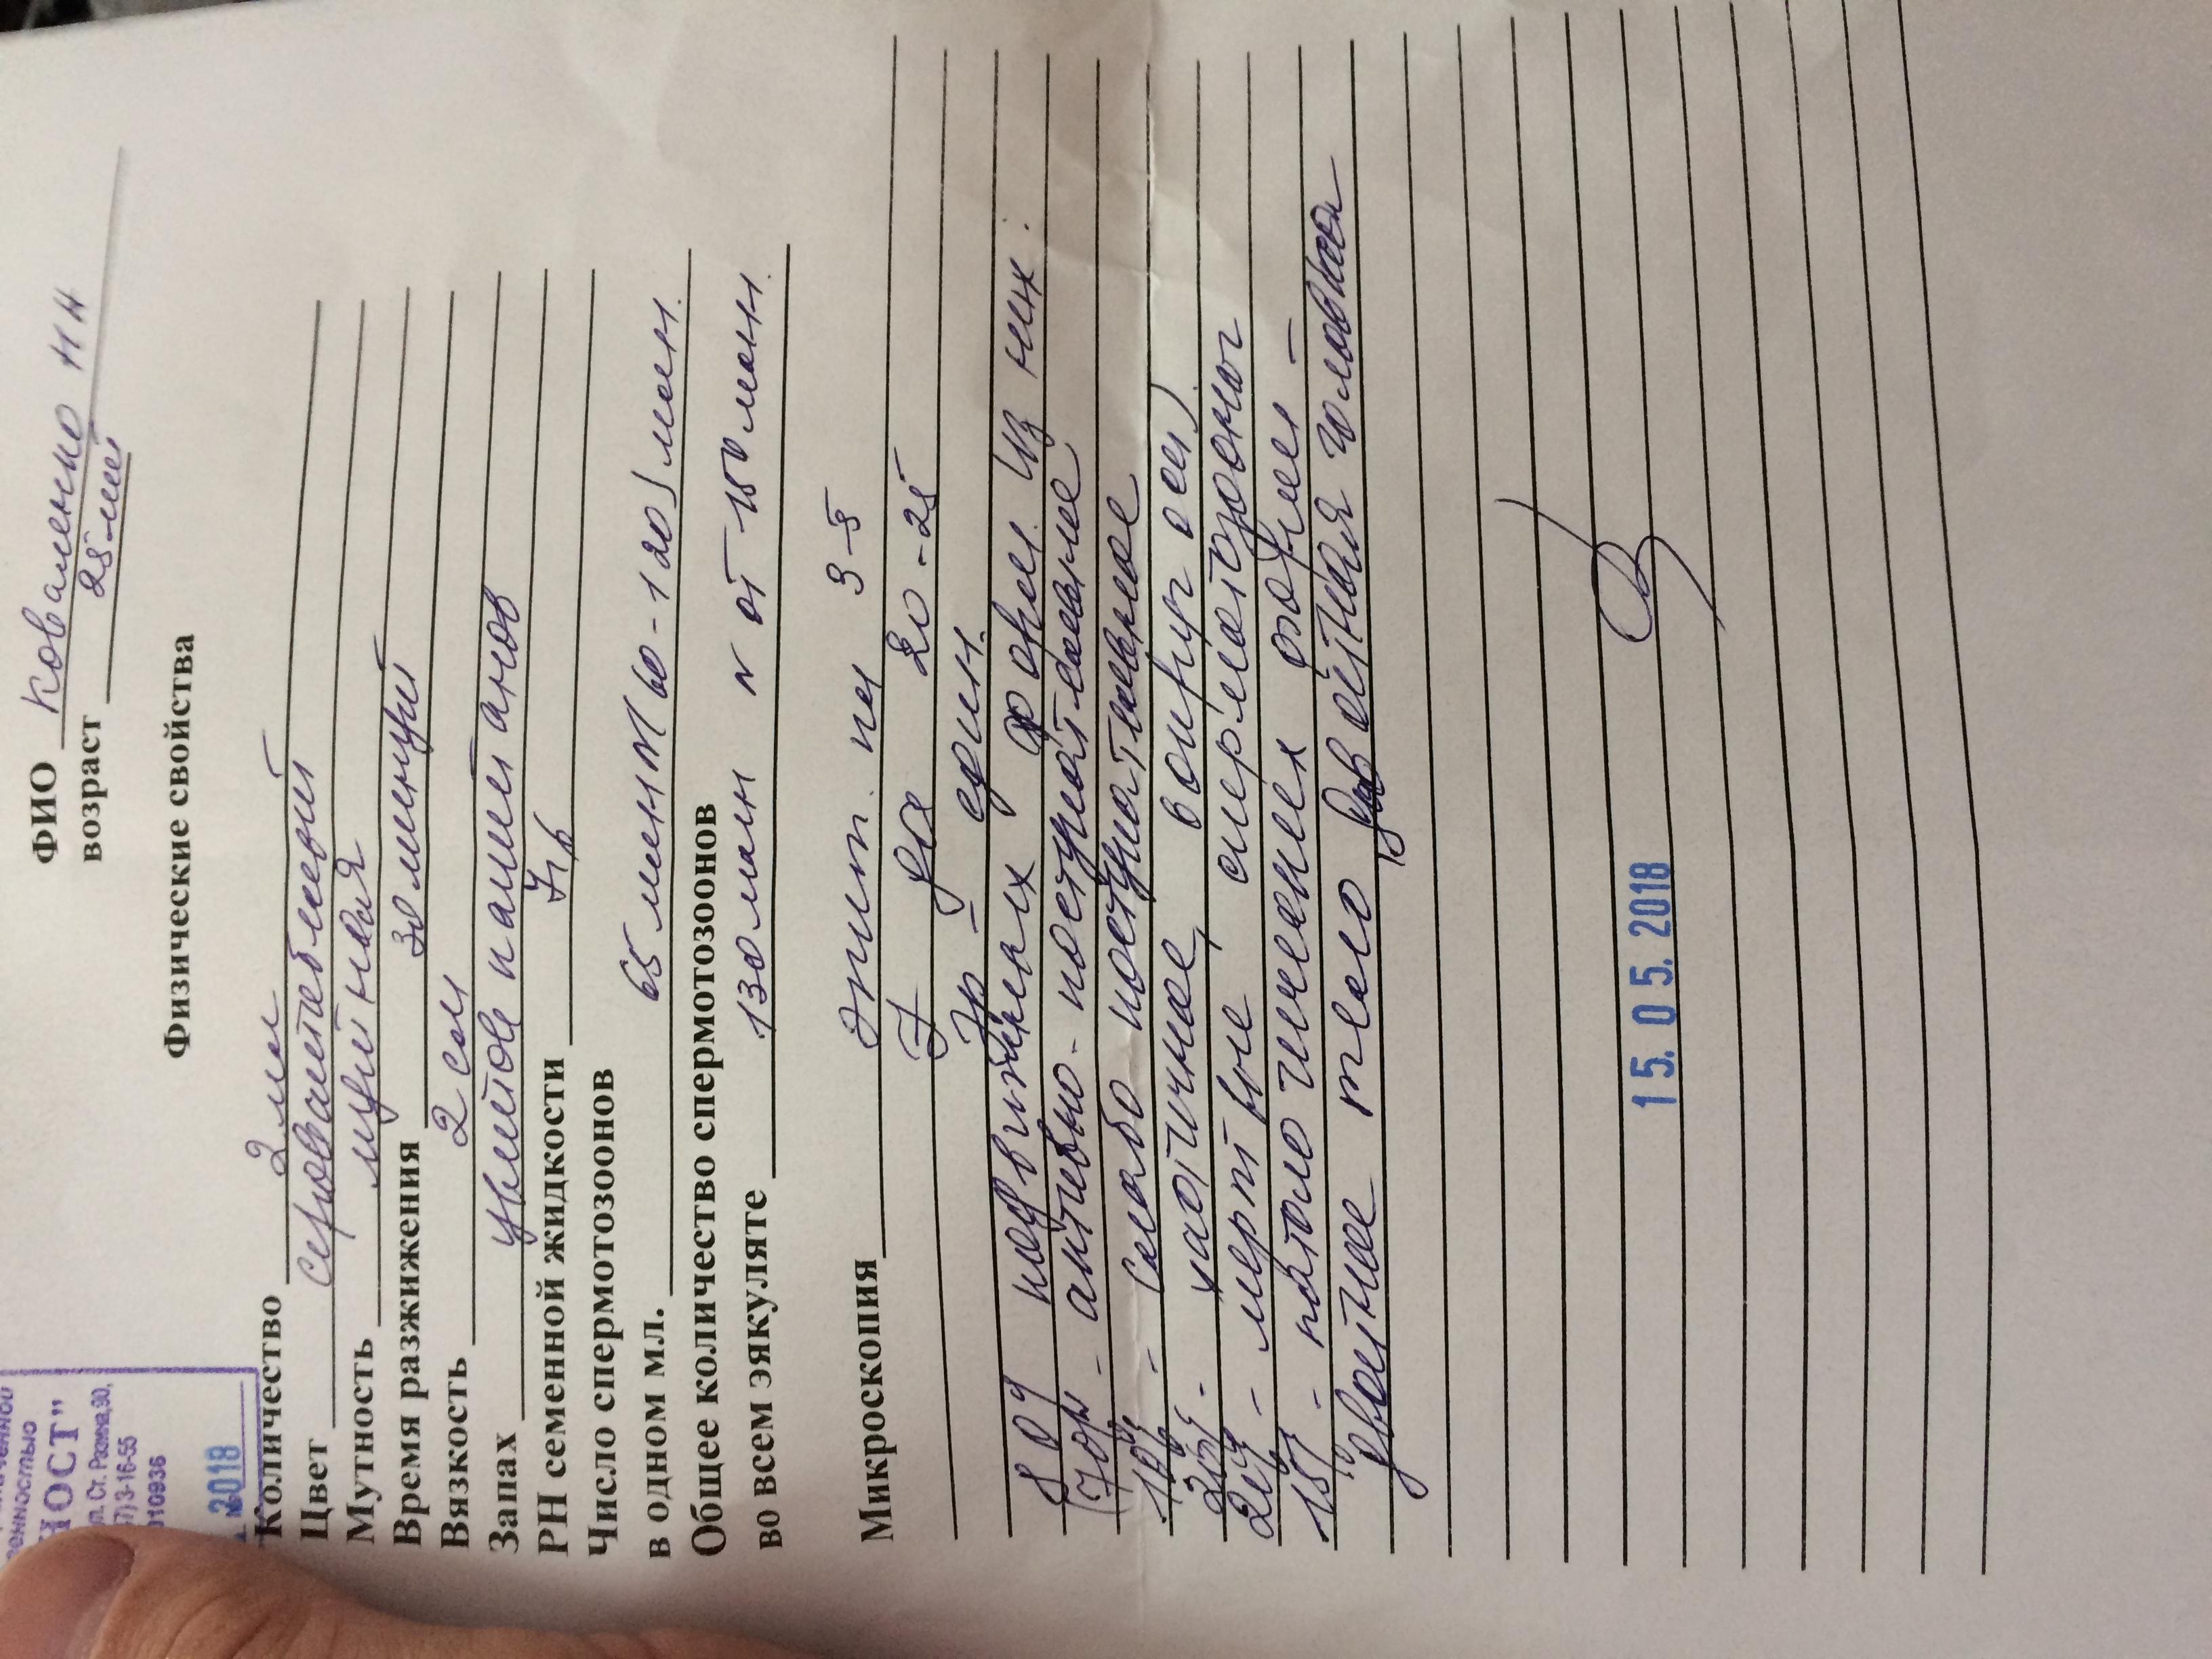 енностью
НОСТ"
ул. Ст. Разина,90,
7) 3-16-55
110936
2018
ФИО Коваленко НН
возраст 28 лет
Физические свойства
Количество 2 мл
Цвет серовато белый
Мутность мутная
Время разжижения 30 минут
Вязкость 2 см
Запах цветов каштанов
РН семенной жидкости 7,6
Число спермотозоонов
в одном мл. 65 млн N 60-120 млн.
Общее количество спермотозоонов
во всем эякуляте 130 млн N от 180 млн.
Микроскопия Эпит. пл 3-5
L 20-25
Эр - един.
80% подвижных форм. из них:
(70% - активно-поступательные
10% - слабо поступательное
20% - мертвые сперматозооног
15% - патологических форм -
двойное тело двойная головка
15. 05. 2018